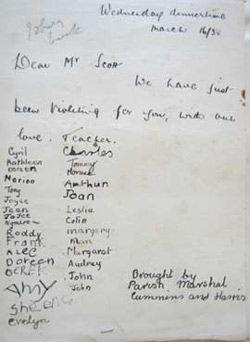 Wednesday dinnertime
March 16/38
Dear Mr Scott
We have just
been for you, with our
love. Teacher.
Cyril Charles
Kathleen Tommy
Doreen Horace
Marion Arthur
Tony Joan
Joyce Leslie
Jean Colin
Joyce
Roddy margery
Frank Alan
ALEC Margaret
Doreen Audrey
DEREK John
Amy John
Sheena
Evelyn
Brought by
Parish, Marshal
Cummens and Harris